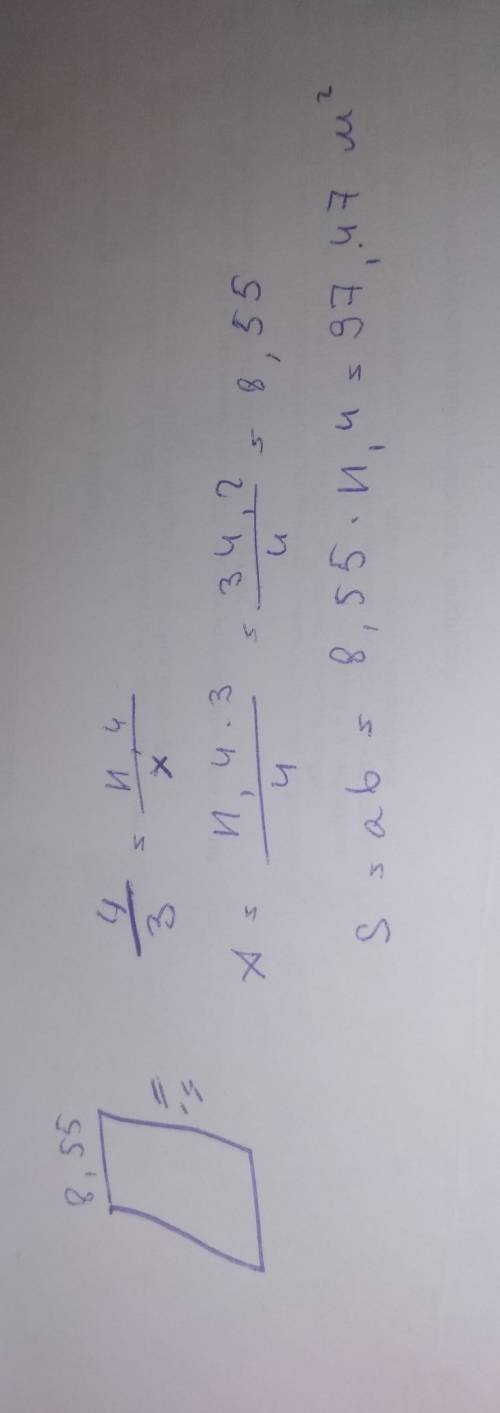 8,55
11,4
4/3 = 11,4/x
x = 11,4 · 3/4 = 34,2/4 = 8,55
S = ab = 8,55 · 11,4 = 97,47 м²